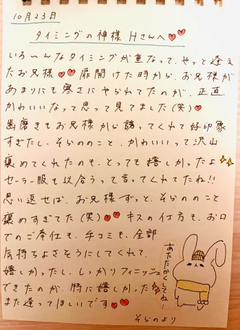 10月23日
タイミングの神様 Hさんへ
いろ〜んなタイミングが重なって、やっと逢え
たお兄様 扉開けた時から、お兄様が
あまりにも寒さにやられてたのが、正直
かわいいなって思って見てました(笑)
歯磨きもお兄様から誘ってくれて好印象
すぎたし、そらののこと、かわいいって沢山
褒めてくれたのも、とっても嬉しかったよ
セーラー服も似合うって言ってくれてたね!!
思い返せば、お兄様ずっと、そらののこと
褒めすぎてた(笑) キスの仕方も、お口
でのご奉仕も、手コミも、全部
気持ちよさそうにしてくれて、
嬉しかったし、しっかりフィニッシュ
できたのが、特に嬉しかったな
また逢ってほしいです
そらのより
あたたかくしてね